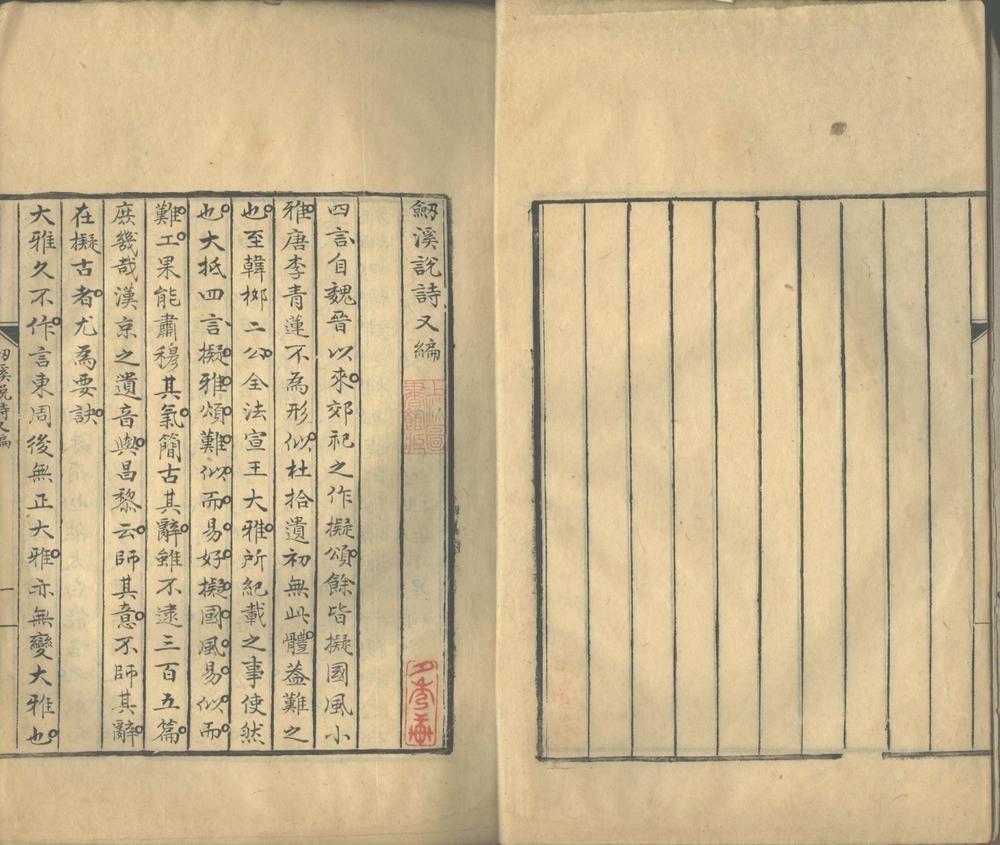 劒溪說詩又編
四言自魏晉以來郊祀之作擬頌餘皆擬國風小
雅唐李青蓮不為形似杜拾遺初無此體葢難之
也至韓桺二公全法宣王大雅所紀載之事使然
也大抵四言擬雅頌難似而易好擬國風易似而
難工果能肅穆其氣簡古其辭雖不逮三百五篇
庶幾哉漢京之遺音與昌黎云師其意不師其辭
在擬古者尤為要訣
大雅久不作言東周後無正大雅亦無變大雅也
劒溪說詩又編
一